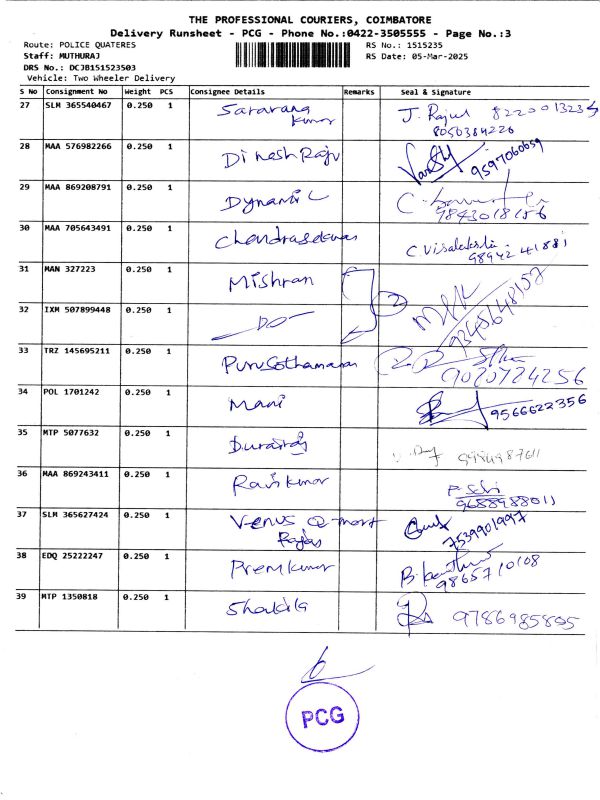 THE PROFESSIONAL COURIERS, COIMBATORE
Delivery Runsheet - PCG - Phone No.:0422-3505555 - Page No.:3
Route: POLICE QUATERES RS No.: 1515235
Staff: MUTHURAJ RS Date: 05-Mar-2025
DRS No.: DCJB151523503
Vehicle: Two Wheeler Delivery
S No Consignment No Weight PCS Consignee Details Remarks Seal & Signature
27 SLM 365540467 0.250 1 Saravana J. Rajul 8220013234
kumar 8050384226
28 MAA 576982266 0.250 1 Dinesh Raju 9597060659
29 MAA 869208791 0.250 1 Dynamic 9843018156
30 MAA 705643491 0.250 1 Chandrasekaran C Visalakshi
98942 41881
31 MAN 327223 0.250 1 Mishran 2
9345648157
32 IXM 507899448 0.250 1 -DO-
33 TRZ 145695211 0.250 1 Purusothamaran
9020724256
34 POL 1701242 0.250 1 Mani 9566622356
35 MTP 5077632 0.250 1 Durairaj 9984987611
36 MAA 869243411 0.250 1 Ravikumar P. Selvi
9688988011
37 SLM 365627424 0.250 1 Venus Q-mart 7539901997
Rajan
38 EDQ 25222247 0.250 1 Premkumar 9865710108
39 MTP 1350818 0.250 1 Shakila 9786985805
PCG